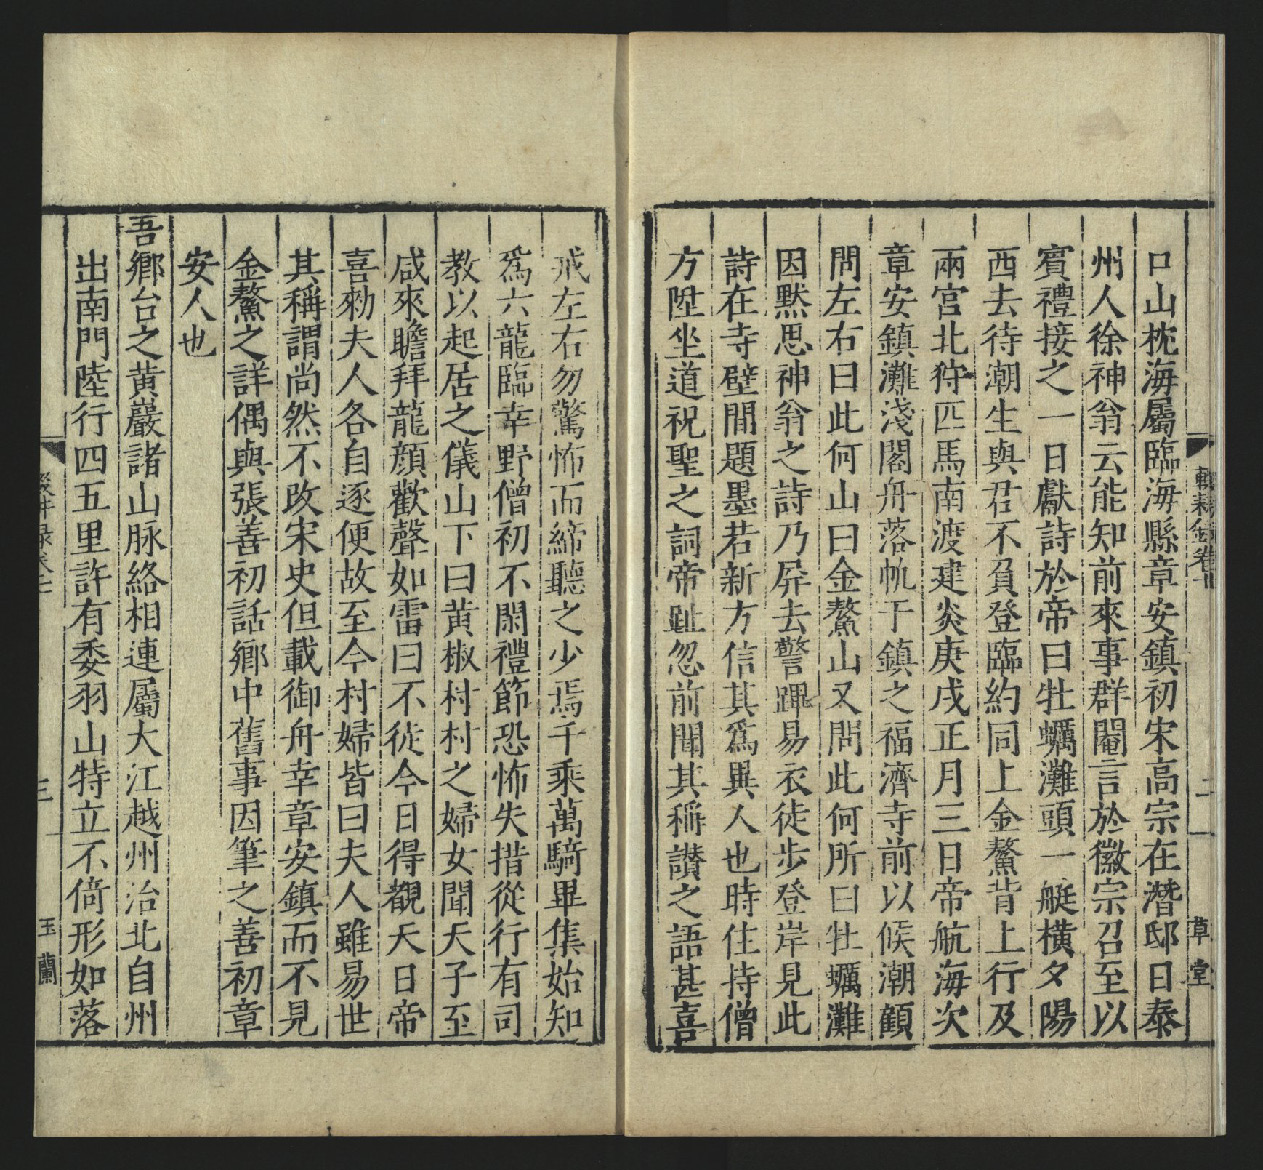 口山枕海屬臨海縣章安鎮初宋高宗在潛邸日泰
州人徐神翁云能知前來事群閹言於徽宗召至以
賓禮接之一日獻詩於帝曰牡蠣灘頭一艇橫夕陽
西去待潮生與君不負登臨約同上金鰲背上行及
兩宮北狩匹馬南渡建炎庚戌正月三日帝航海次
章安鎮灘淺閣舟落帆于鎮之福濟寺前以候潮顧
問左右曰此何山曰金鰲山又問此何所曰牡蠣灘
因黙思神翁之詩乃屏去警蹕易衣徒步登岸見此
詩在寺壁間題墨若新方信其爲異人也時住持僧
方陞坐道祝聖之詞帝趾忽前聞其稱讃之語甚喜
戒左右勿驚怖而締聽之少焉千乘萬騎畢集始知
爲六龍臨幸野僧初不閑禮節恐怖失措從行有司
教以起居之儀山下曰黄椒村村之婦女聞天子至
咸來瞻拜龍顔歡聲如雷曰不徒今日得覩天日帝
喜勑夫人各自逐便故至今村婦皆曰夫人雖易世
其稱謂尚然不改宋史但載御舟幸章安鎮而不見
金鰲之詳偶與張善初話鄉中舊事因筆之善初章
安人也
吾鄉台之黄巖諸山脉絡相連屬大江越州治北自州
出南門陸行四五里許有委羽山特立不倚形如落
二
草堂
三
玉蘭